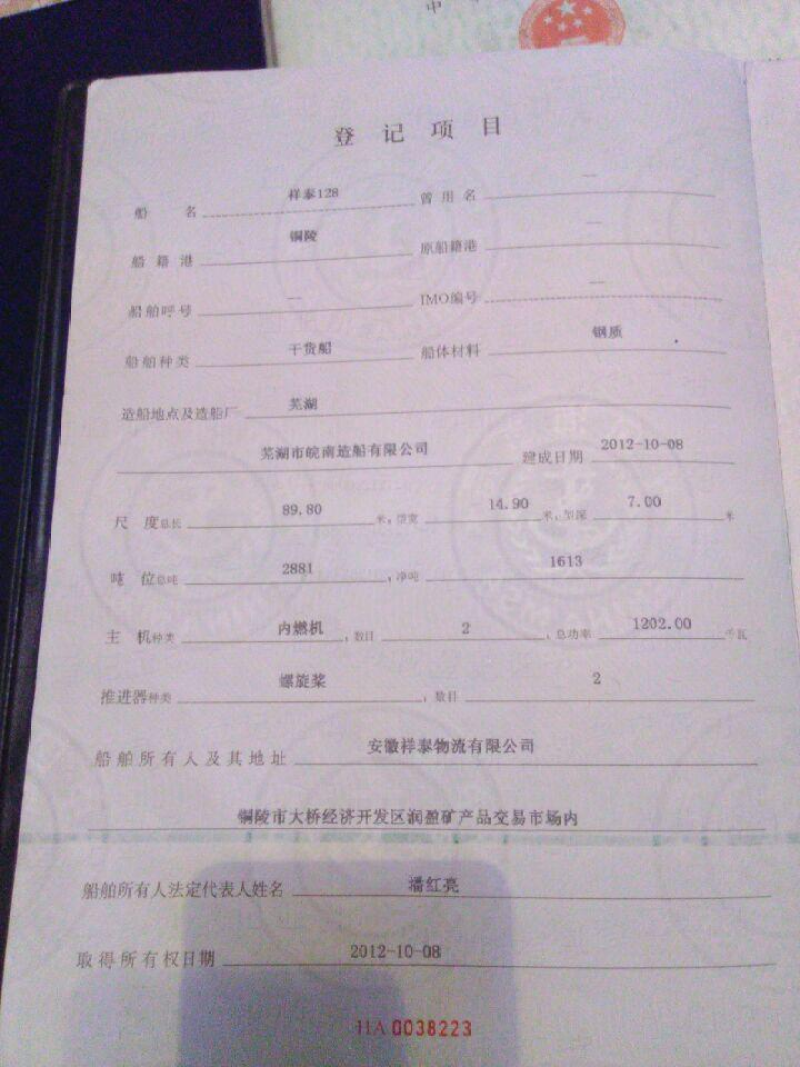 中
登记项目
船名 祥泰128 曾用名 —
船籍港 铜陵 原船籍港 —
船舶呼号 — IMO编号 —
船舶种类 干货船 船体材料 钢质
造船地点及造船厂 芜湖
芜湖市皖南造船有限公司 建成日期 2012-10-08
尺度总长 89.80 米,型宽 14.90 米,型深 7.00 米
吨位总吨 2881 ,净吨 1613
主机种类 内燃机 ,数目 2 ,总功率 1202.00 千瓦
推进器种类 螺旋桨 ,数目 2
船舶所有人及其地址 安徽祥泰物流有限公司
铜陵市大桥经济开发区润盈矿产品交易市场内
船舶所有人法定代表人姓名 潘红亮
取得所有权日期 2012-10-08
HA 0038223